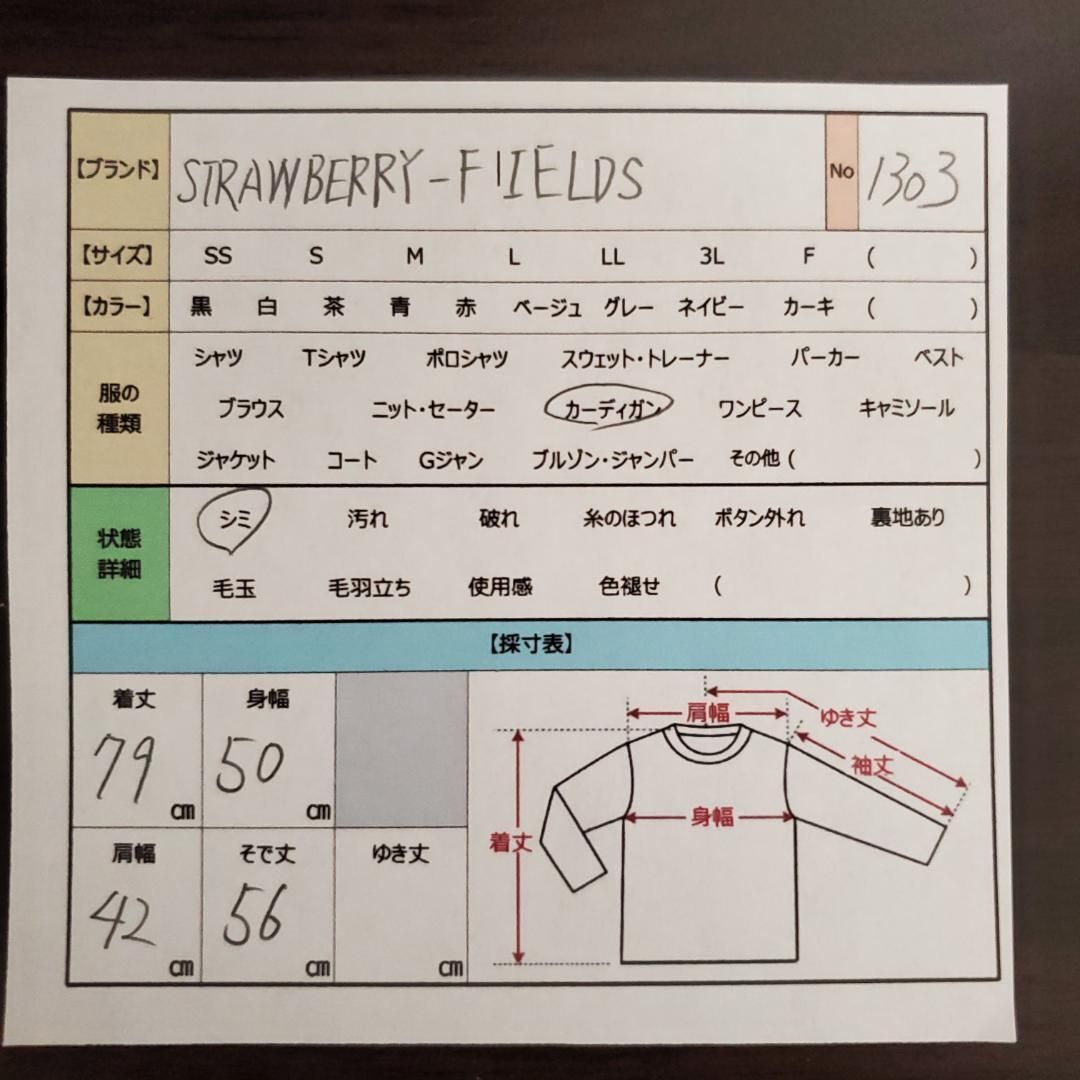 【ブランド】 STRAWBERRY-FIELDS No 1303
【サイズ】 SS S M L LL 3L F ( )
【カラー】 黒 白 茶 青 赤 ベージュ グレー ネイビー カーキ ( )
服の種類
シャツ Tシャツ ポロシャツ スウェット・トレーナー パーカー ベスト
ブラウス ニット・セーター カーディガン ワンピース キャミソール
ジャケット コート Gジャン ブルゾン・ジャンパー その他 ( )
状態詳細
シミ 汚れ 破れ 糸のほつれ ボタン外れ 裏地あり
毛玉 毛羽立ち 使用感 色褪せ ( )
【採寸表】
着丈 身幅
79 cm 50 cm
肩幅 そで丈 ゆき丈
42 cm 56 cm cm
肩幅 ゆき丈
袖丈
身幅
着丈